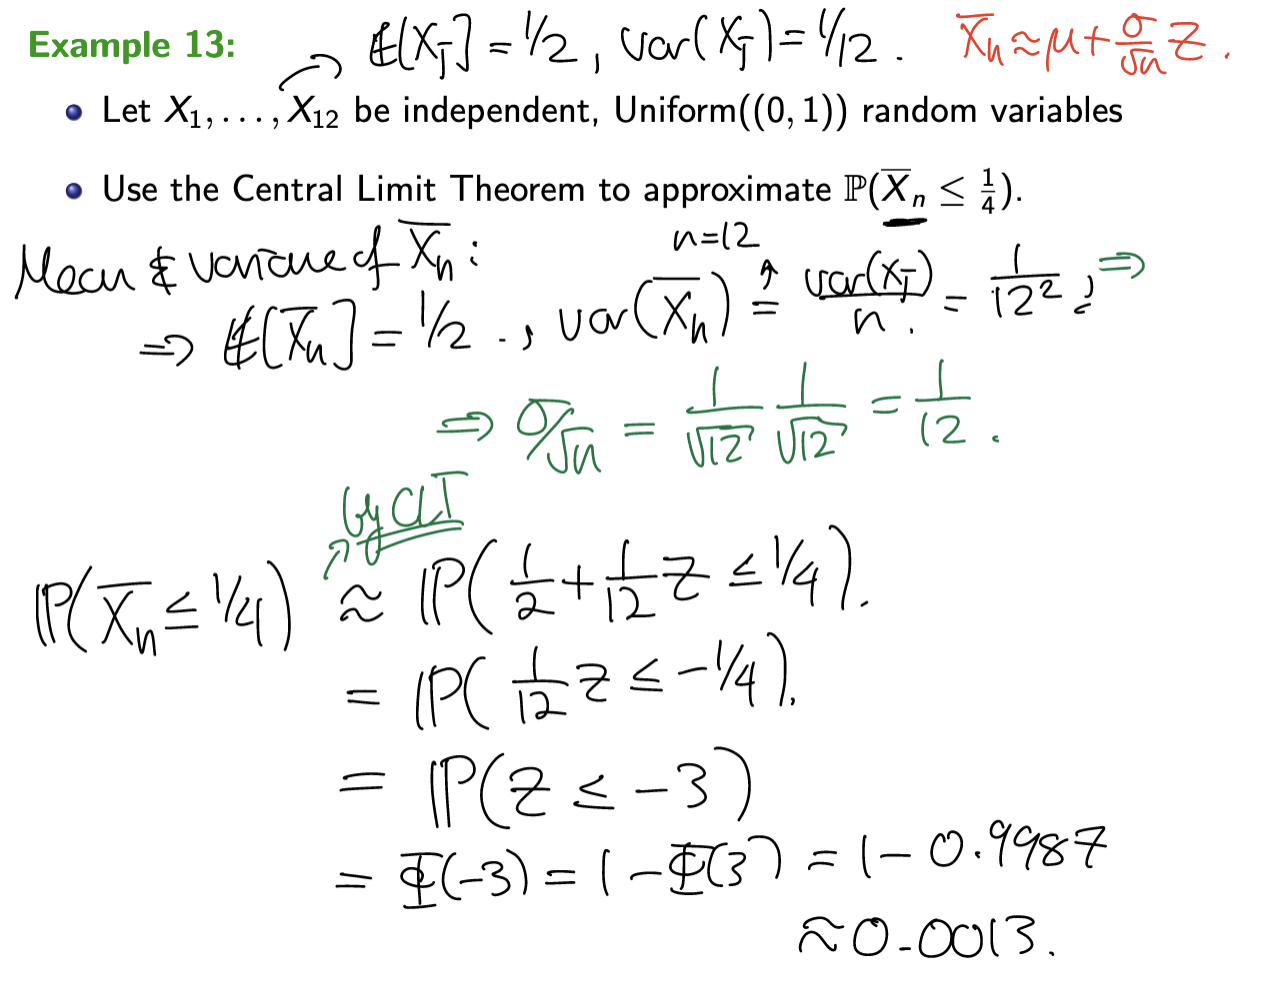 Example 13: E[X_j] = 1/2, var(X_j) = 1/12. X̄_n ≈ μ + σ/√n Z.
Let X_1, . . . , X_12 be independent, Uniform((0, 1)) random variables
Use the Central Limit Theorem to approximate ℙ(X̄_n ≤ 1/4).
Mean & variance of X̄_n:
n=12
⇒ E[X̄_n] = 1/2 ., var(X̄_n) = var(X_j)/n. = 1/12² ; ⇒
⇒ σ/√n = 1/√12 1/√12 = 1/12.
by CLT
ℙ(X̄_n ≤ 1/4) ≈ ℙ(1/2 + 1/12 Z ≤ 1/4).
= ℙ(1/12 Z ≤ -1/4).
= ℙ(Z ≤ -3)
= Φ(-3) = 1 - Φ(3) = 1 - 0.9987
≈ 0.0013.